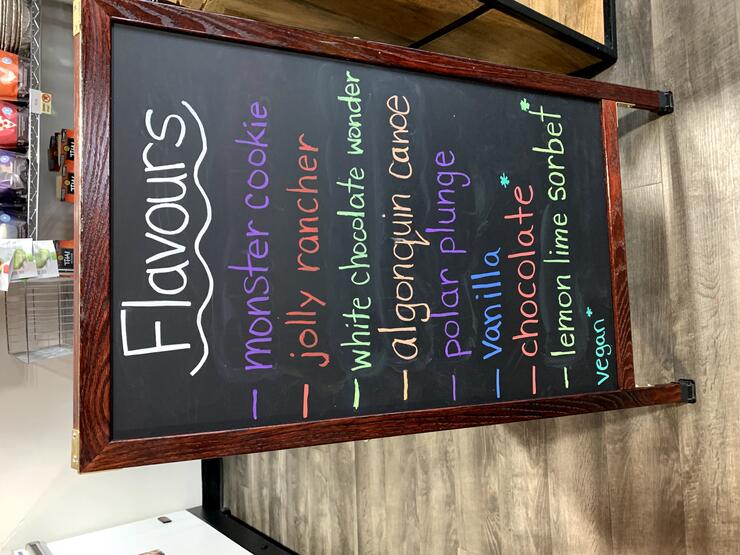 Flavours
- monster cookie
- jolly rancher
- white chocolate wonder
- algonquin canoe
- polar plunge
- vanilla
- chocolate*
- lemon lime sorbet*
vegan*